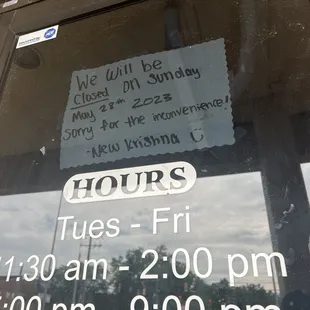 We will be
Closed on Sunday
May 28th 2023
Sorry for the inconvenience!
- New Krishna
HOURS
Tues - Fri
11:30 am - 2:00 pm
:00 pm - 9:00 pm